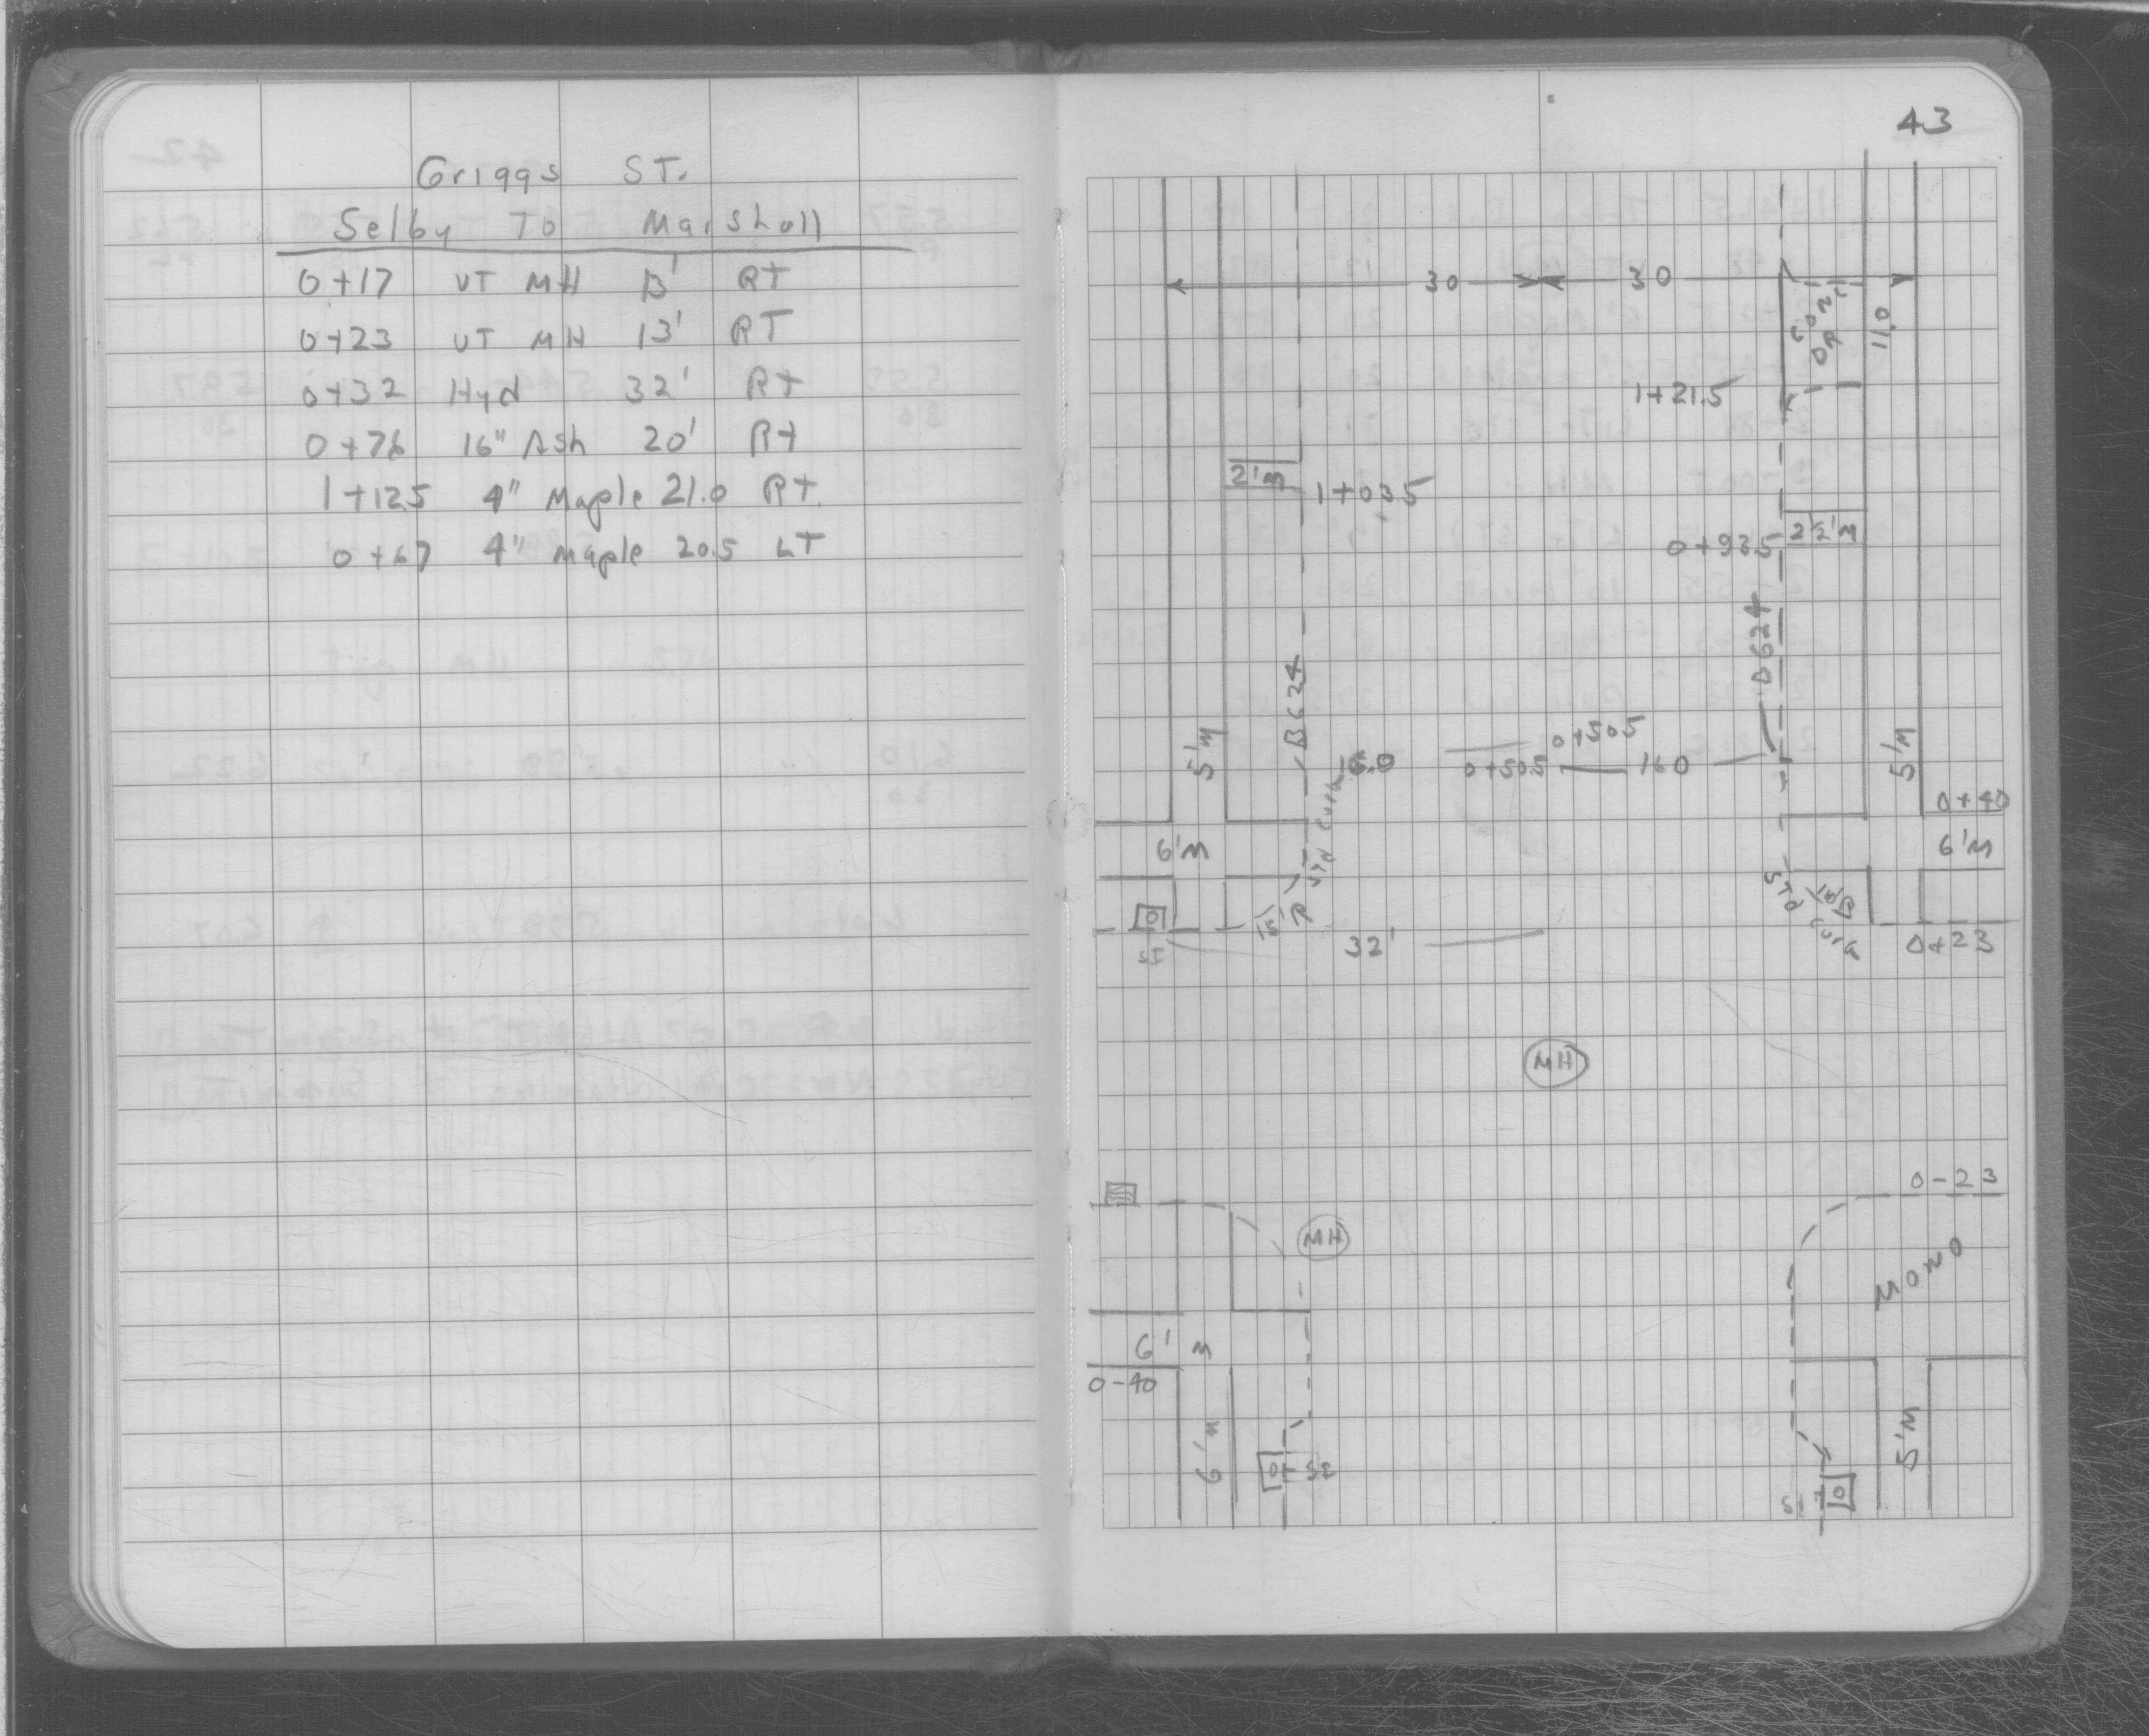 43
Griggs ST.
Selby To Marshall
0+17 UT MH 13' RT
0+23 UT MH 13' RT
0+32 Hyd 32' Rt
0+76 16" Ash 20' Rt
1+12.5 4" Maple 21.0 Rt.
0+67 4" Maple 20.5 LT
30 30
11.0
1+21.5
2'M 1+03.5
0+93.5 2½'M
B624
B624
5'M
16.0 0+50.5 0+50.5 16.0
5'M
0+40
6'M
6'M
Std Curb
Std Curb
15'
15'
SI
32'
0+23
MH
0-23
MH
Mono
6'M
0-40
6'M
SI
SI
5'M